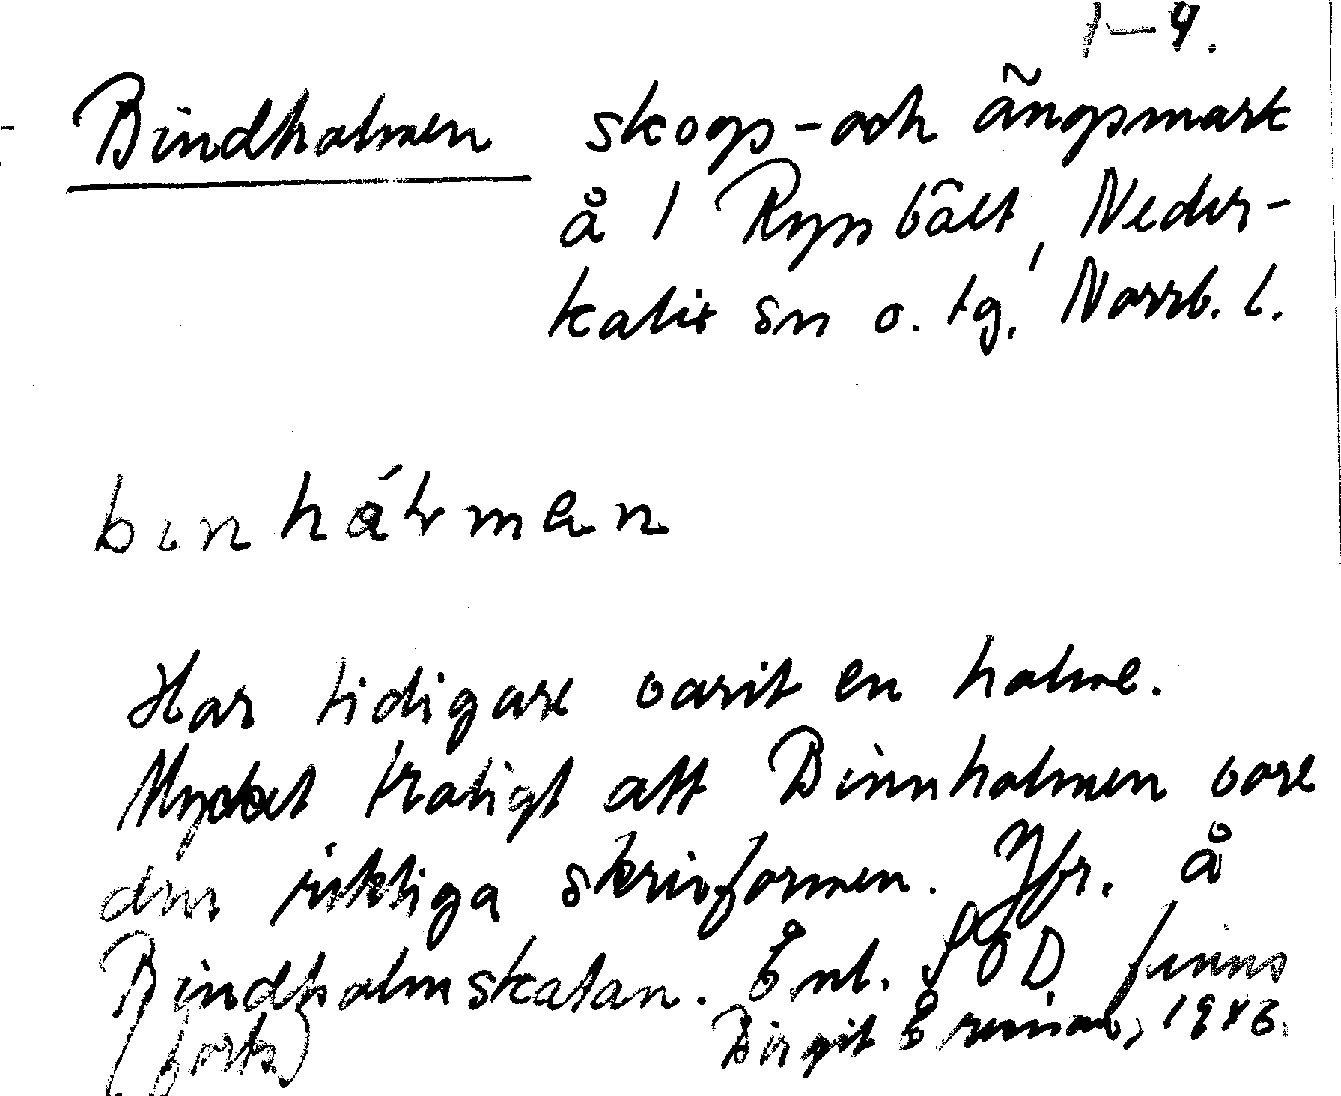 1–4.
Bindholmen skogs- och ängsmark
å 1 Rynbält, Neder-
kalix sn o. tg. Norrb. l.
binhálmen
Har tidigare varit en holme.
Mycket troligt att Binnholmen vore
den riktiga skrivformen. Jfr. å
Bindholmskatan. Enl. SOD finns
(forts) Birgit 1946.